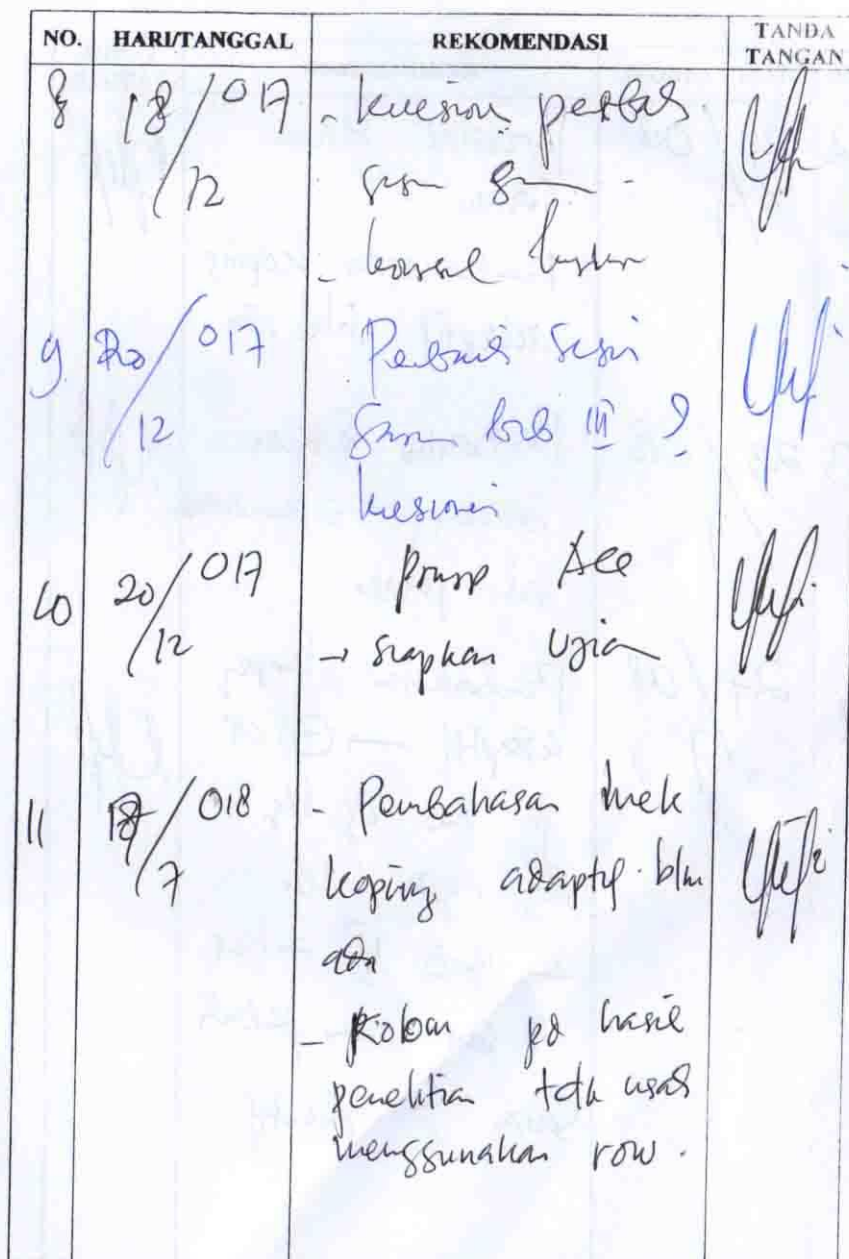 NO. HARI/TANGGAL REKOMENDASI TANDA TANGAN
8 18/017 - kuesion perbaik
/12 sesuai saran -
- konsul
9 20/017 Perbaiki sesuai
/12 saran bab III &
kuesioner
10 20/017 Prinsip Acc
/12 → siapkan Ujian
11 18/018 - Pembahasan mek
/7 koping adaptif blm
ada
- pd hasil
penelitian tdk usah
menggunakan row.